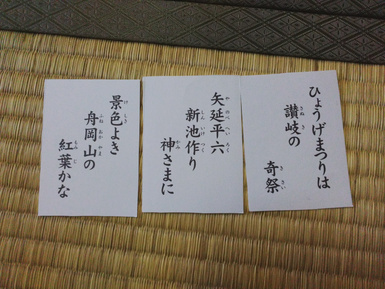 ひょうげまつりは
讃岐の
奇祭
矢延平六
新池作り
神さまに
景色よき
舟岡山の
紅葉かな